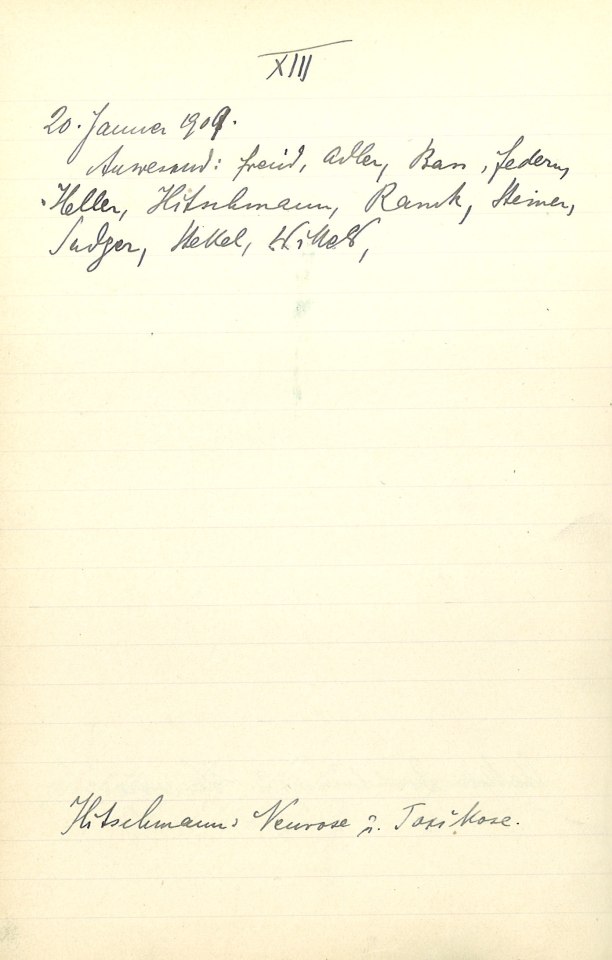 XIII
20. Januar 1909.
Anwesend: Freud, Adler, Bass, Federn,
Heller, Hitschmann, Rank, Steiner,
Sadger, Stekel, Wittels,
Hitschmann: Neurose u. Toxikose.